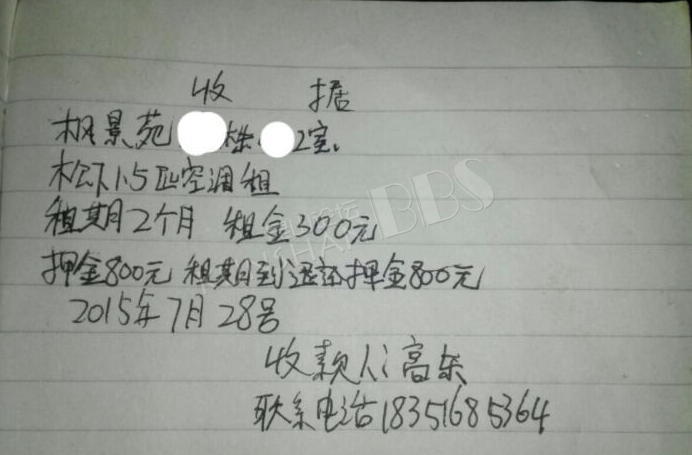 收 据
枫景苑 栋 2室、
松下1.5匹空调租
租期2个月 租金300元
押金800元 租期到退还押金800元
2015年7月28号
收款人:高东
联系电话18351685364
BBS